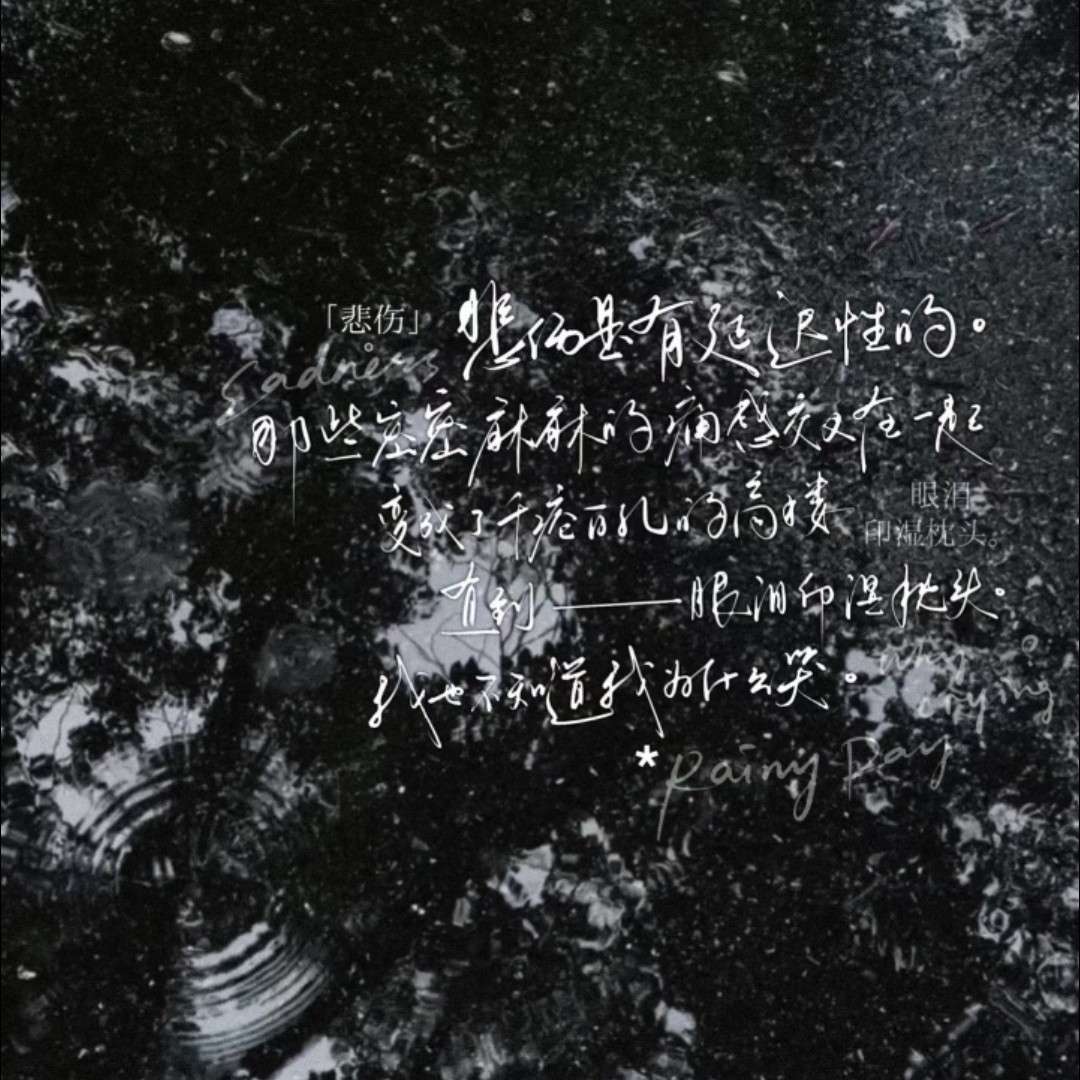 「悲伤」
Sadness
悲伤是有延迟性的。
那些密密麻麻的痛感交叉在一起
变成了千疮百孔的高楼
眼泪
印湿枕头。
直到——眼泪印湿枕头。
我也不知道我为什么哭。
why
crying?
*Rainy Day